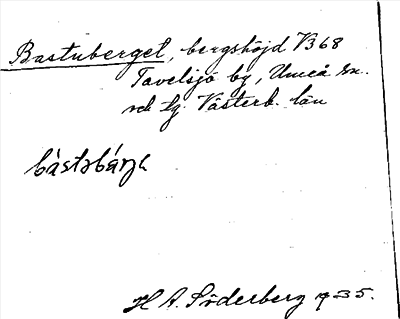 Bastuberget, bergshöjd V368
Tavelsjö by, Umeå sn.
och tg. Västerb. län
H A. Söderberg 1935.